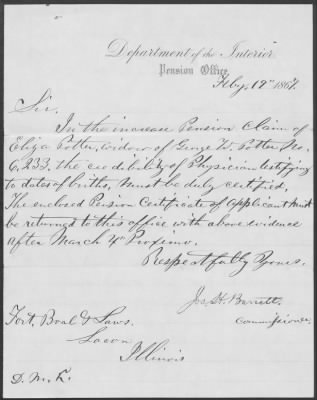 Department of the Interior
Pension Office
Feby. 19" 1867.
Sir.
In the increase Pension Claim of
Eliza Potter, widow of George W. Potter No.
6,233. the credibility of Physician testifying
to dates of births, must be duly certified.
The enclosed Pension Certificate of applicant must
be returned to this office with above evidence
after March 4" Proximo.
Respectfully Yours.
Jos. H. Barrett
Commissioner
Fort, Boal & Laws.
Lacon
Illinois
D. M. K.